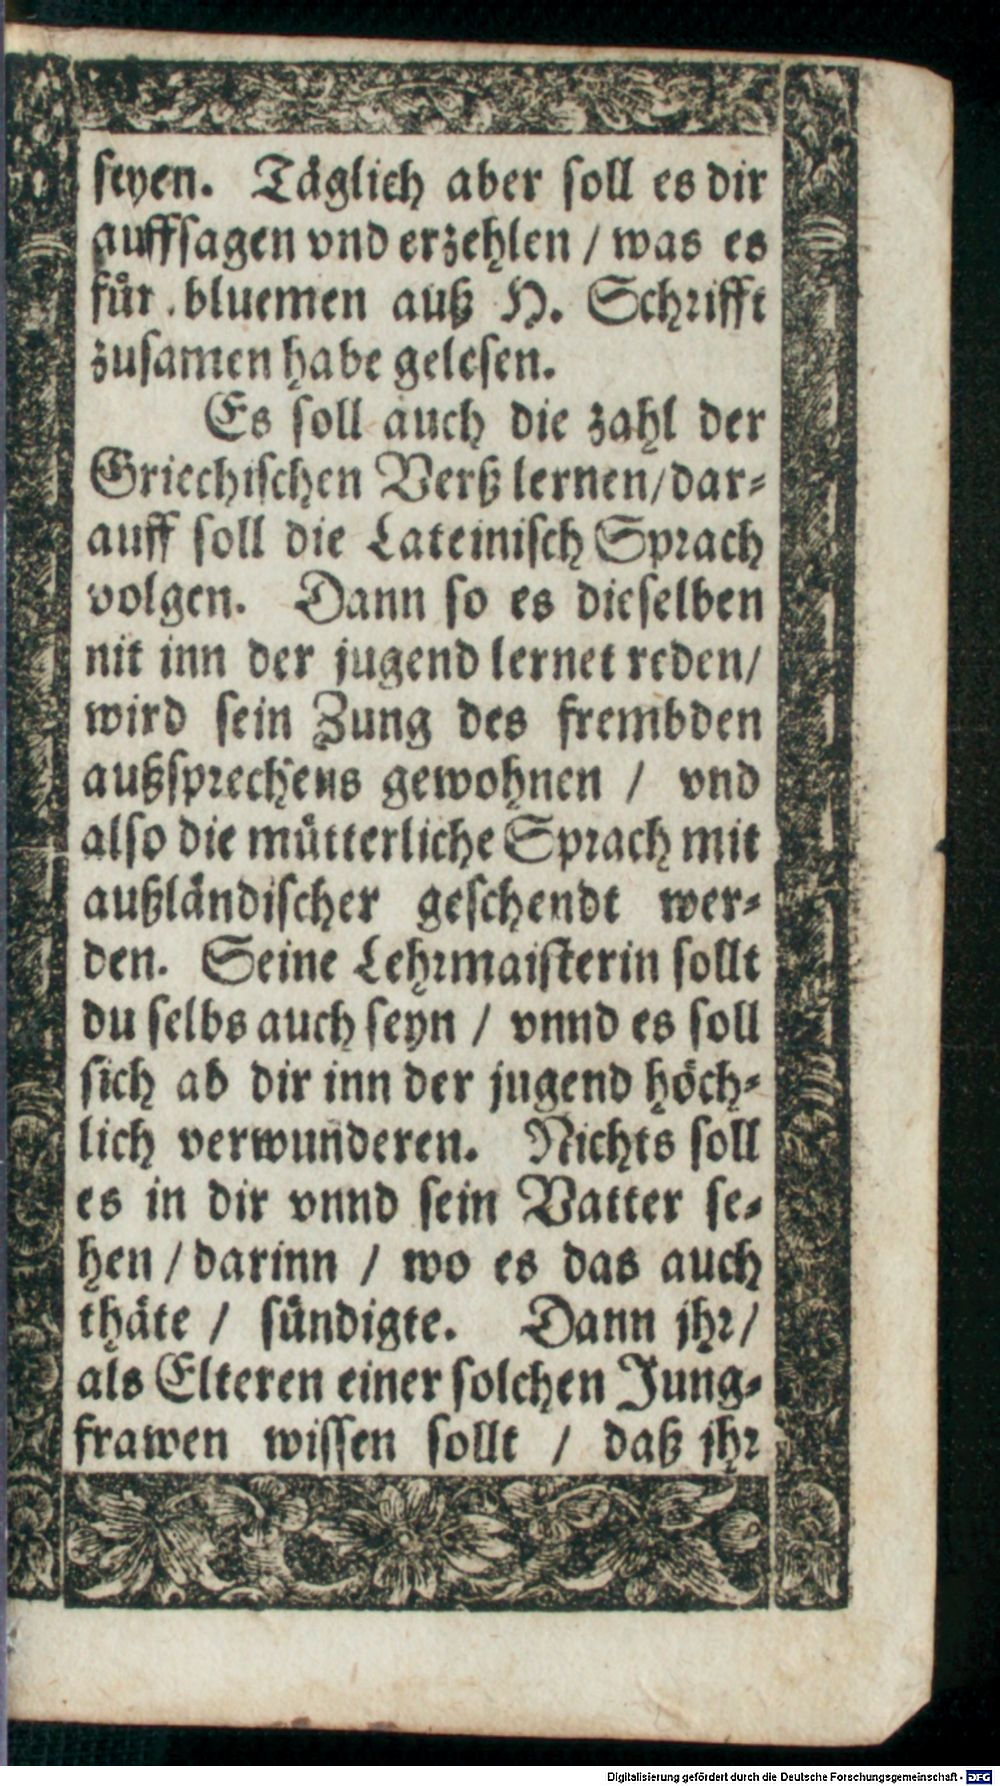 seyen. Täglich aber soll es dir
auffsagen vnd erzehlen / was es
für bluemen auß H. Schrifft
zusamen habe gelesen.
Es soll auch die zahl der
Griechischen Verß lernen/dar-
auff soll die Lateinisch Sprach
volgen. Dann so es dieselben
nit inn der jugend lernet reden/
wird sein Zung des frembden
außsprechens gewohnen / vnd
also die mütterliche Sprach mit
außländischer geschendt wer-
den. Seine Lehrmaisterin sollt
du selbs auch seyn / vnnd es soll
sich ab dir inn der jugend höch-
lich verwunderen. Nichts soll
es in dir vnnd sein Vatter se-
hen / darinn / wo es das auch
thäte / sündigte. Dann jhr/
als Elteren einer solchen Jung-
frawen wissen sollt / daß jhr
Digitalisierung gefördert durch die Deutsche Forschungsgemeinschaft - DFG